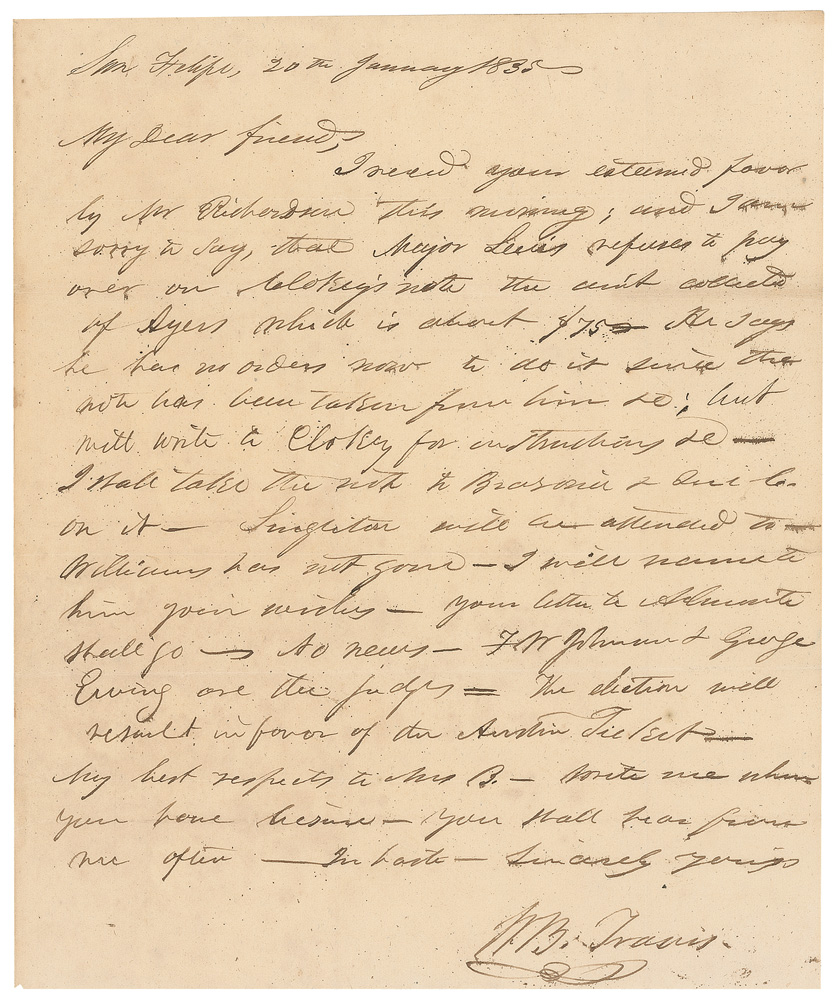 San Felipe, 20th January 1835
My Dear friend,
I recd your esteemed favor
by Mr Richardson this morning; and I am
sorry to say, that Major Lewis refuses to pay
over on Clokey's note the amt collected
of Ayers which is about $75 — He says
he has no orders now to do it since the
note has been taken from him &c; but
will write to Clokey for instructions &c —
I shall take the note to Brazoria & sue
on it — Singleton will be attended to —
Williams has not gone — I will name to
him your wishes — your letter to Almonte
shall go — No news — F W Johnson & George
Ewing are the judges = The election will
result in favor of the Austin Ticket —
My best respects to Mrs B. — Write me when
you have leisure — You shall hear from
me often — In haste — Sincerely yours
W.B. Travis.